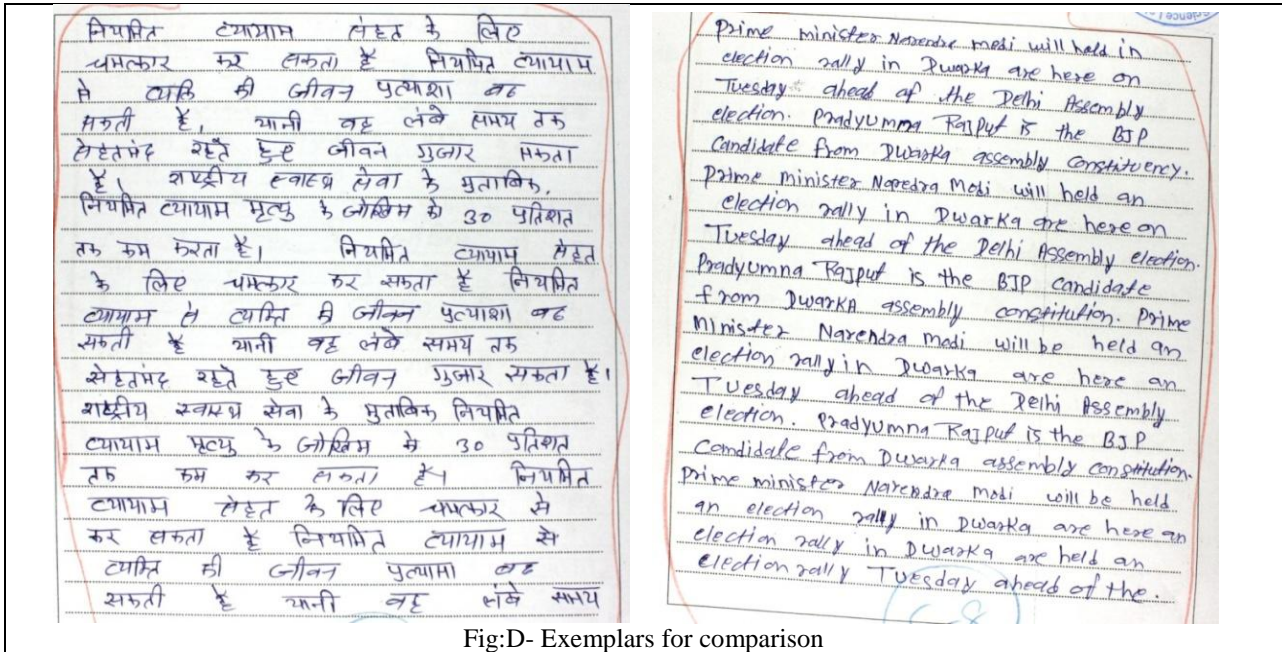 नियमित व्यायाम सेहत के लिए
चमत्कार कर सकता है नियमित व्यायाम
से व्यक्ति की जीवन प्रत्याशा बढ
सकती है, यानी वह लंबे समय तक
सेहतमंद रहते हुए जीवन गुजार सकता
है। राष्ट्रीय स्वास्थ्य सेवा के मुताबिक,
नियमित व्यायाम मृत्यु के जोखिम को 30 प्रतिशत
तक कम करता है। नियमित व्यायाम सेहत
के लिए चमत्कार कर सकता है नियमित
व्यायाम से व्यक्ति की जीवन प्रत्याशा बढ
सकती है यानी वह लंबे समय तक
सेहतमंद रहते हुए जीवन गुजार सकता है।
राष्ट्रीय स्वास्थ सेवा के मुताबिक नियमित
व्यायाम मृत्यु के जोखिम मे 30 प्रतिशत
तक कम कर सकता है। नियमित
व्यायाम सेहत के लिए चमत्कार से
कर सकता है नियमित व्यायाम से
व्यक्ति की जीवन बढ
सकती है यानी वह लंबे समय
Prime minister Narendra modi will held in
election rally in Dwarka are here on
Tuesday ahead of the Delhi Assembly
election. Pradyumna Rajput is the BJP
candidate from Dwarka assembly constituency.
Prime minister Naredra Modi will held an
election rally in Dwarka are here on
Tuesday ahead of the Delhi Assembly election.
Pradyumna Rajput is the BJP candidate
from DwarkA assembly constitution. Prime
Minister Narendra Modi will be held an
election rally in Dwarka are here an
Tuesday ahead of the Delhi Assembly
election. Pradyumna Rajput is the BJP
Candidate from Dwarka assembly constitution.
Prime minister Narendra modi will be held
an election rally in Dwarka are here an
election rally in Dwarka are held an
election rally Tuesday ahead of the.
Fig:D- Exemplars for comparison